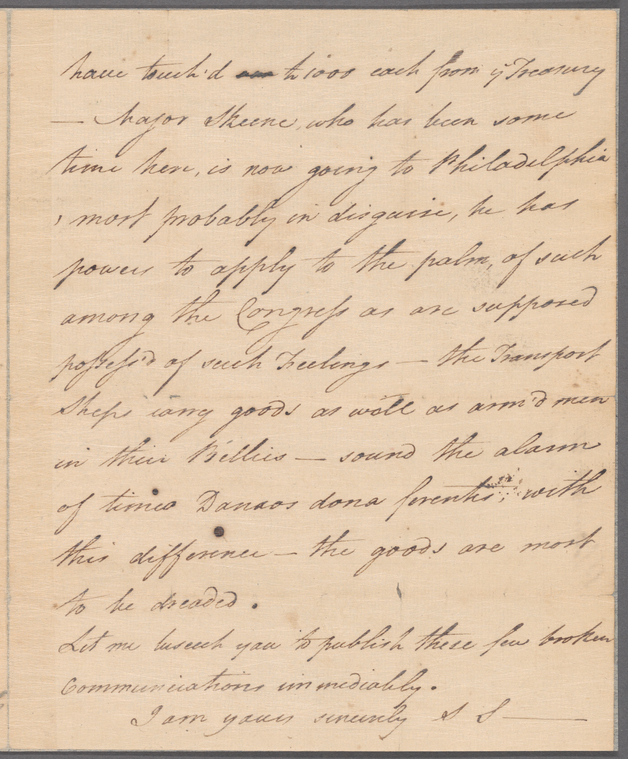 have touch'd £1000 each from yͤ Treasury
— Major Skeene, who has been some
time here, is now going to Philadelphia
, most probably in disguise, he has
powers to apply to the palm, of such
among the Congress as are supposed
possess'd of such Feelings — the Transport
Ships carry goods as well as arm'd men
in their Bellies — sound the alarm
of timeo Danaos dona ferentis, with
this difference — the goods are most
to be dreaded.
Let me beseech you to publish these few broken
Communications immediately.
I am yours sincerely A S —